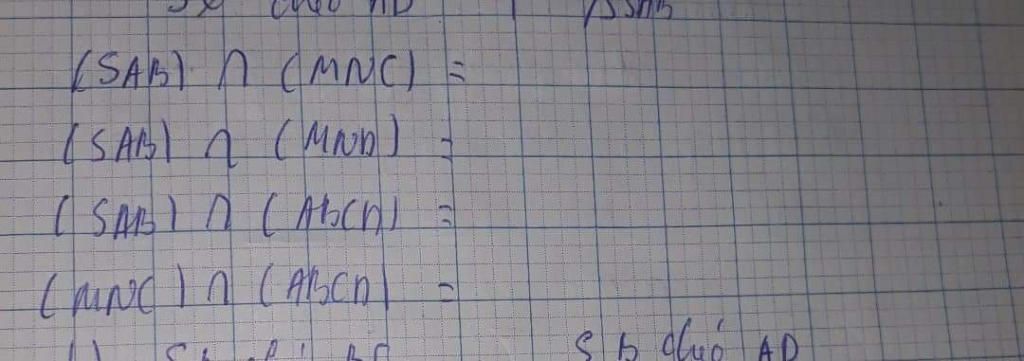 chứa AD
(SAB) ∩ (MNC) =
(SAB) ∩ (MND) =
(SAB) ∩ (ABCD) =
(MNC) ∩ (ABCD) =
S b chứa AD